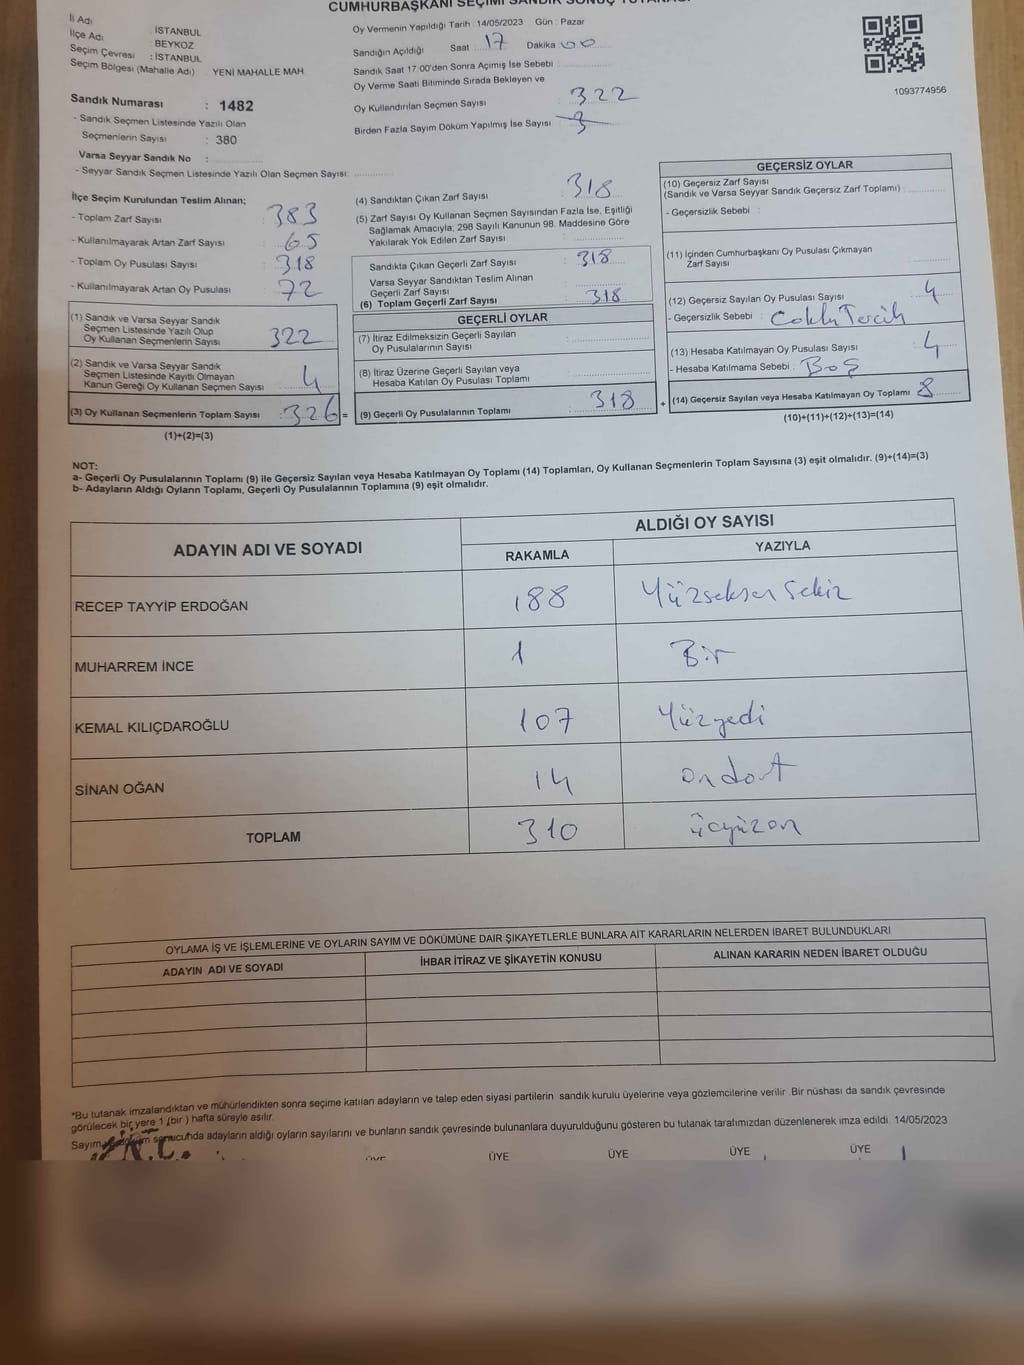 CUMHURBAŞKANI SEÇİMİ SANDIK SONUÇ TUTANAĞI
İl Adı İSTANBUL
İlçe Adı : BEYKOZ
Seçim Çevresi : İSTANBUL
Seçim Bölgesi (Mahalle Adı) YENİ MAHALLE MAH.
Sandık Numarası : 1482
- Sandık Seçmen Listesinde Yazılı Olan
Seçmenlerin Sayısı : 380
Varsa Seyyar Sandık No :
- Seyyar Sandık Seçmen Listesinde Yazılı Olan Seçmen Sayısı:
Oy Vermenin Yapıldığı Tarih : 14/05/2023 Gün : Pazar
Sandığın Açıldığı Saat 17 Dakika 00
Sandık Saat 17:00'den Sonra Açımış İse Sebebi :
Oy Verme Saati Bitiminde Sırada Bekleyen ve
Oy Kullandırılan Seçmen Sayısı 322
Birden Fazla Sayım Döküm Yapılmış İse Sayısı 3
1093774956
İlçe Seçim Kurulundan Teslim Alınan;
- Toplam Zarf Sayısı : 383
- Kullanılmayarak Artan Zarf Sayısı : 65
- Toplam Oy Pusulası Sayısı : 318
- Kullanılmayarak Artan Oy Pusulası : 72
(1) Sandık ve Varsa Seyyar Sandık
Seçmen Listesinde Yazılı Olup
Oy Kullanan Seçmenlerin Sayısı 322
(2) Sandık ve Varsa Seyyar Sandık
Seçmen Listesinde Kayıtlı Olmayan
Kanun Gereği Oy Kullanan Seçmen Sayısı 4
(3) Oy Kullanan Seçmenlerin Toplam Sayısı : 326 =
(1)+(2)=(3)
(4) Sandıktan Çıkan Zarf Sayısı 318
(5) Zarf Sayısı Oy Kullanan Seçmen Sayısından Fazla İse, Eşitliği
Sağlamak Amacıyla; 298 Sayılı Kanunun 98. Maddesine Göre
Yakılarak Yok Edilen Zarf Sayısı :
Sandıkta Çıkan Geçerli Zarf Sayısı : 318
Varsa Seyyar Sandıktan Teslim Alınan
Geçerli Zarf Sayısı
(6) Toplam Geçerli Zarf Sayısı : 318
GEÇERLİ OYLAR
(7) İtiraz Edilmeksizin Geçerli Sayılan
Oy Pusulalarının Sayısı :
(8) İtiraz Üzerine Geçerli Sayılan veya
Hesaba Katılan Oy Pusulası Toplamı
(9) Geçerli Oy Pusulalarının Toplamı : 318 +
GEÇERSİZ OYLAR
(10) Geçersiz Zarf Sayısı
(Sandık ve Varsa Seyyar Sandık Geçersiz Zarf Toplamı) :
- Geçersizlik Sebebi :
(11) İçinden Cumhurbaşkanı Oy Pusulası Çıkmayan
Zarf Sayısı
(12) Geçersiz Sayılan Oy Pusulası Sayısı : 4
- Geçersizlik Sebebi : Coklu Tercih
(13) Hesaba Katılmayan Oy Pusulası Sayısı : 4
- Hesaba Katılmama Sebebi : Boş
(14) Geçersiz Sayılan veya Hesaba Katılmayan Oy Toplamı 8
(10)+(11)+(12)+(13)=(14)
NOT:
a- Geçerli Oy Pusulalarının Toplamı (9) ile Geçersiz Sayılan veya Hesaba Katılmayan Oy Toplamı (14) Toplamları, Oy Kullanan Seçmenlerin Toplam Sayısına (3) eşit olmalıdır. (9)+(14)=(3)
b- Adayların Aldığı Oyların Toplamı, Geçerli Oy Pusulalarının Toplamına (9) eşit olmalıdır.
ADAYIN ADI VE SOYADI ALDIĞI OY SAYISI
RAKAMLA YAZIYLA
RECEP TAYYİP ERDOĞAN 188 Yüzseksen sekiz
MUHARREM İNCE 1 Bir
KEMAL KILIÇDAROĞLU 107 Yüzyedi
SİNAN OĞAN 14 ondort
TOPLAM 310 üçyüzon
OYLAMA İŞ VE İŞLEMLERİNE VE OYLARIN SAYIM VE DÖKÜMÜNE DAİR ŞİKAYETLERLE BUNLARA AİT KARARLARIN NELERDEN İBARET BULUNDUKLARI
ADAYIN ADI VE SOYADI İHBAR İTİRAZ VE ŞİKAYETİN KONUSU ALINAN KARARIN NEDEN İBARET OLDUĞU
*Bu tutanak imzalandıktan ve mühürlendikten sonra seçime katılan adayların ve talep eden siyasi partilerin sandık kurulu üyelerine veya gözlemcilerine verilir. Bir nüshası da sandık çevresinde
görülecek bir yere 1 (bir ) hafta süreyle asılır.
Sayım sonucunda adayların aldığı oyların sayılarını ve bunların sandık çevresinde bulunanlara duyurulduğunu gösteren bu tutanak tarafımızdan düzenlenerek imza edildi. 14/05/2023
T.C.
ÜYE ÜYE ÜYE ÜYE ÜYE